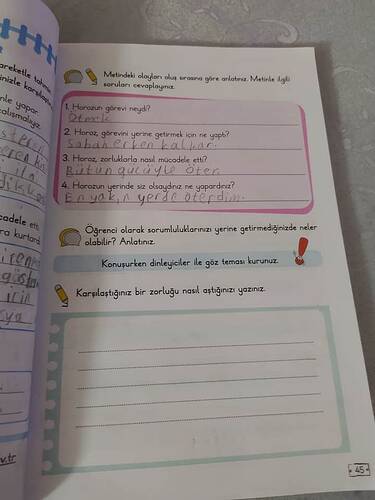 Metindeki olayları oluş sırasına göre anlatınız. Metinle ilgili
soruları cevaplayınız.
1. Horozun görevi neydi?
Ötmek
2. Horoz, görevini yerine getirmek için ne yaptı?
Sabah erken kalkar.
3. Horoz, zorluklarla nasıl mücadele etti?
Bütün gücüyle öter.
4. Horozun yerinde siz olsaydınız ne yapardınız?
En yakın yerde öterdim.
Öğrenci olarak sorumluluklarınızı yerine getirmediğinizde neler
olabilir? Anlatınız.
Konuşurken dinleyiciler ile göz teması kurunuz.
Karşılaştığınız bir zorluğu nasıl aştığınızı yazınız.
45
areketle tahmin
inizle karşılaştırı
nle yapar
çalışmalıyız.
cadele etti
ra kurtardı
için
v.tr